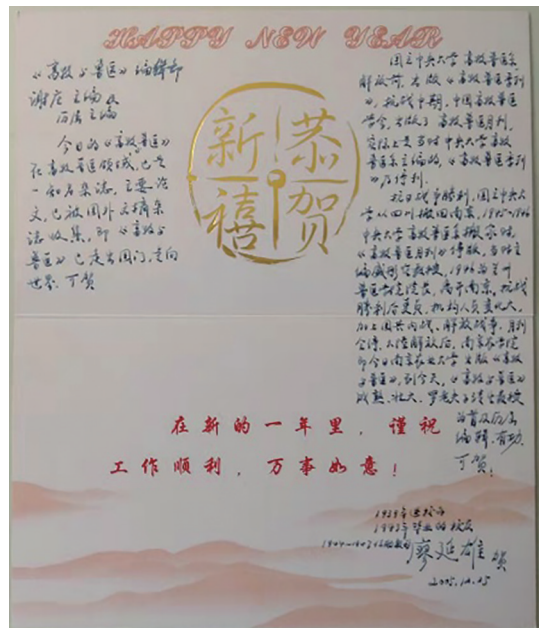 HAPPY NEW YEAR
《畜牧与兽医》编辑部
谢庄 主编及
历届主编
今日的《畜牧与兽医》
在畜牧兽医领域,已是
一知名杂志,主要论
文,已被国外文摘杂
志收集,即《畜牧与
兽医》已走出国门,走向
世界. 可贺
恭贺
新禧
国立中央大学畜牧兽医系
解放前,出版《畜牧兽医季刊
》,抗战中期,中国畜牧兽医
学会,出版了畜牧兽医月刊,
实际上是当时中央大学畜牧
兽医系主编的,《畜牧兽医季刊
》乃停刊.
抗日战争胜利,国立中央大
学从四川搬回南京,1945-1946
中央大学畜牧兽医系搬家忙,
《畜牧兽医月刊》停顿,当时主
编盛彤笙教授,1946为兰州
兽医学院院长,离开南京,抗战
胜利后复员,机构人员变化大,
加上国共内战、解放战争,月刊
全停.大陆解放后,南京农学院
即今日南京农业大学出版《畜牧
与兽医》,到今天,《畜牧与兽医》
成熟、壮大.罗清生教授
为首及历届
编辑,有功,
可贺!
在新的一年里,谨祝
工作顺利,万事如意!
1939年进校的
1943年毕业的校友
廖延雄 贺
2005.12.25